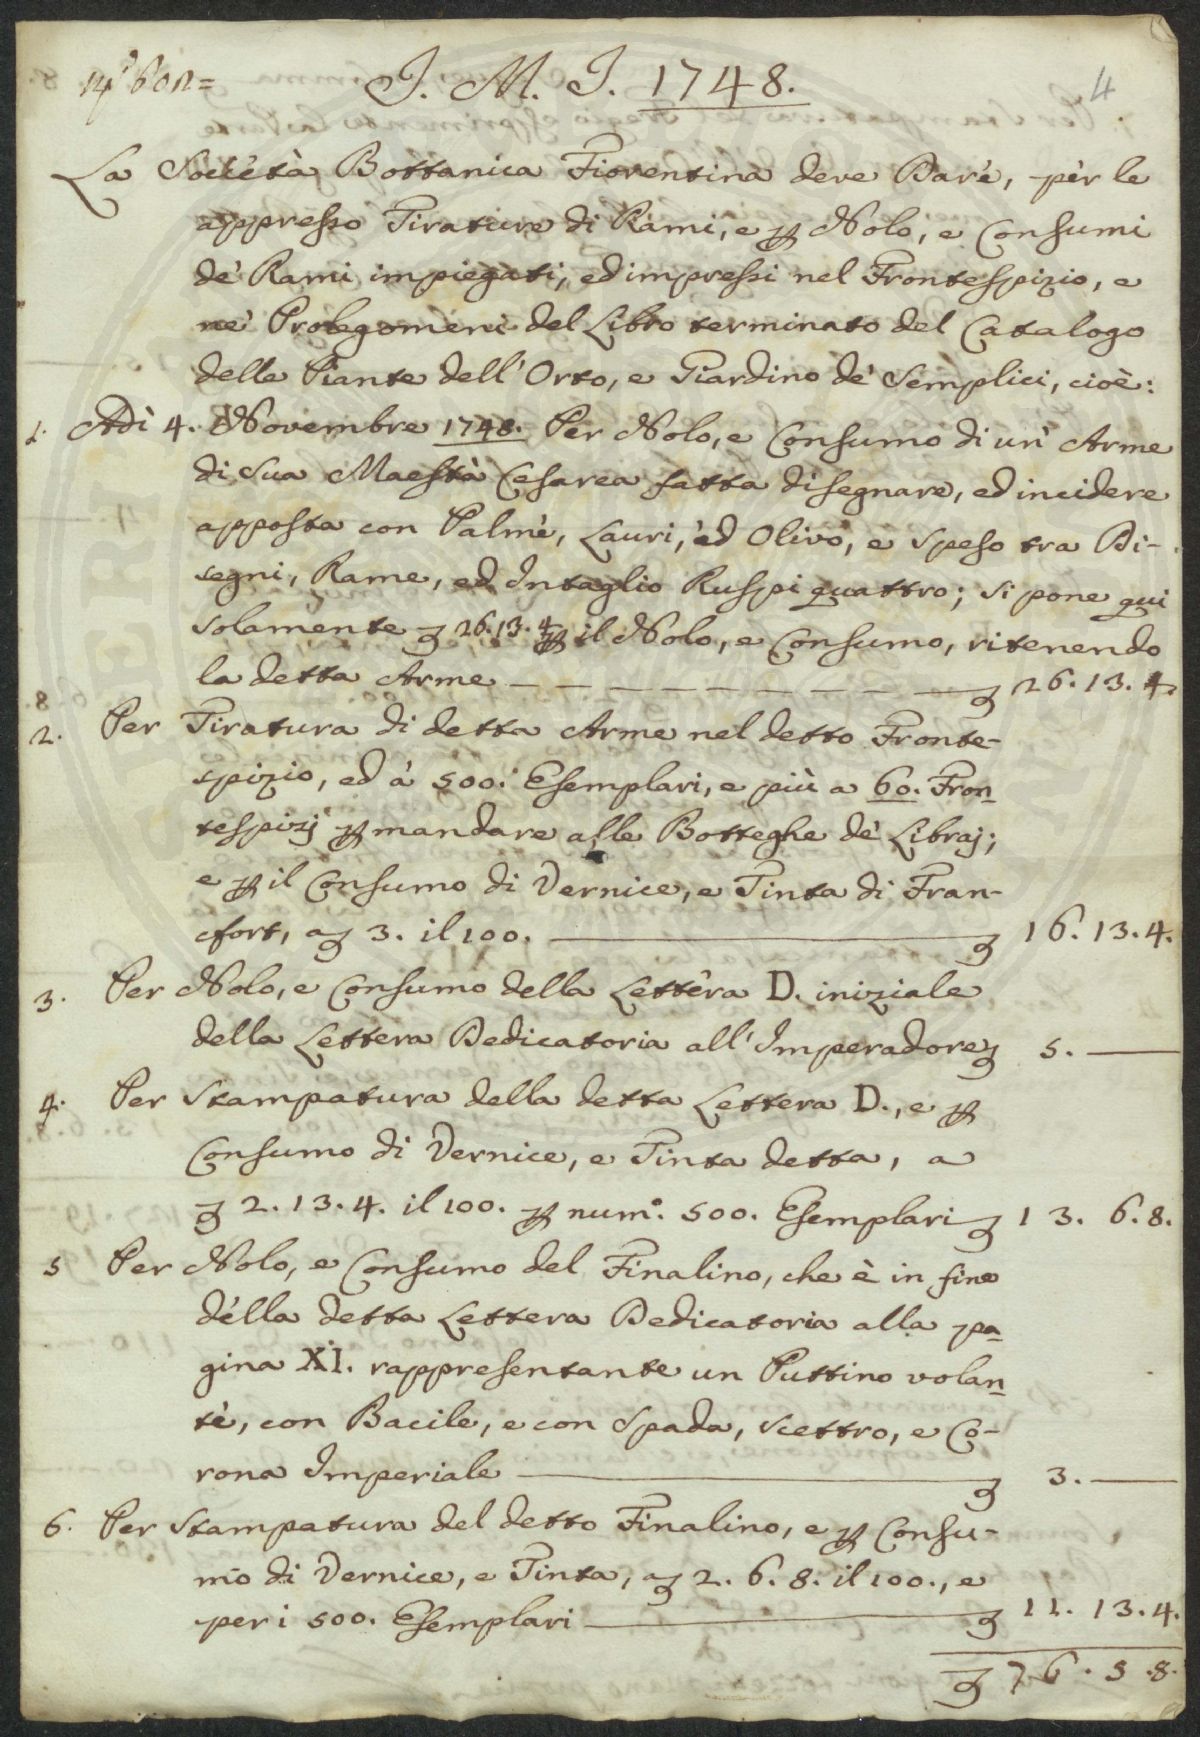 J. M. J. 1748.
4
La Società Bottanica Fiorentina deve Dare, per le
appresso Tirature di Rami, e ꝑ Nolo, e Consumi
de' Rami impiegati, ed impressi nel Frontespizio, e
ne' Prolegomeni del Libro terminato del Catalogo
delle Piante dell' Orto, e Giardino de' Semplici, cioè:
1. Adì 4. Novembre 1748. Per Nolo, e Consumo di un' Arme
di Sua Maestà Cesarea fatta disegnare, ed incidere
apposta con Palme, Lauri, ed Olivo, e speso tra Di-
segni, Rame, ed Intaglio Ruspi quattro; si pone qui
solamente ʒ 26.13.4 ꝑ il Nolo, e Consumo, ritenendo
la detta Arme — ʒ 26.13.4.
2. Per Tiratura di detta Arme nel detto Fronte-
spizio, ed à 500. Esemplari, e più a 60. Fron
tespizj ꝑ mandare alle Botteghe de' Libraj;
e ꝑ il Consumo di Vernice, e Tinta di Fran-
cfort, a ʒ 3. il 100. — ʒ 16.13.4.
3. Per Nolo, e Consumo della Lettera D. iniziale
della Lettera Dedicatoria all' Imperadore ʒ 5. —
4. Per Stampatura della detta Lettera D., e ꝑ
Consumo di Vernice, e Tinta detta, a
ʒ 2.13.4. il 100. ꝑ num.° 500. Esemplari ʒ 13. 6.8.
5 Per Nolo, e Consumo del Finalino, che è in fine
della detta Lettera Dedicatoria alla pa
gina XI. rappresentante un Puttino volan
te, con Bacile, e con Spada, Scettro, e Co-
rona Imperiale — ʒ 3. —
6. Per Stampatura del detto Finalino, e ꝑ Consu-
mo di Vernice, e Tinta, a ʒ 2. 6. 8. il 100., e
per i 500. Esemplari — ʒ 11. 13. 4.
ʒ 76. 5. 8.